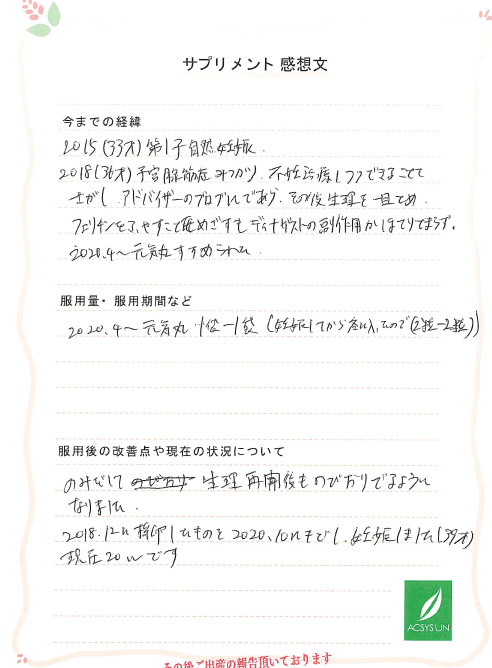 サプリメント 感想文
今までの経緯
2015(33才)第1子自然妊娠.
2018(36才)子宮腺筋症みつかり. 不妊治療しつつできることを
さがし アドバイザーのブログに出あう. その後生理を一旦とめ.
フェリチンをふやすことをめざすも ディナゲストの副作用か ほてりでまらず.
2020.4〜元気丸すすめられた.
服用量・服用期間など
2020.4〜 元気丸 1袋〜1袋 (妊娠してから
服用後の改善点や現在の状況について
のみだして 生理再開後ものびおりでるように
なりました.
2018.12に採卵したものを2020.10にもどし. 妊娠しました(39才)
現在20wです
ACSYSUN
その後ご出産の報告頂いております